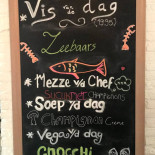 * Vis van de dag
(19,50)
Zeebaars
* Mezze v/d Chef
* Soep v/d dag
Champignon Creme
* Vega v/d dag
GNOCCHI